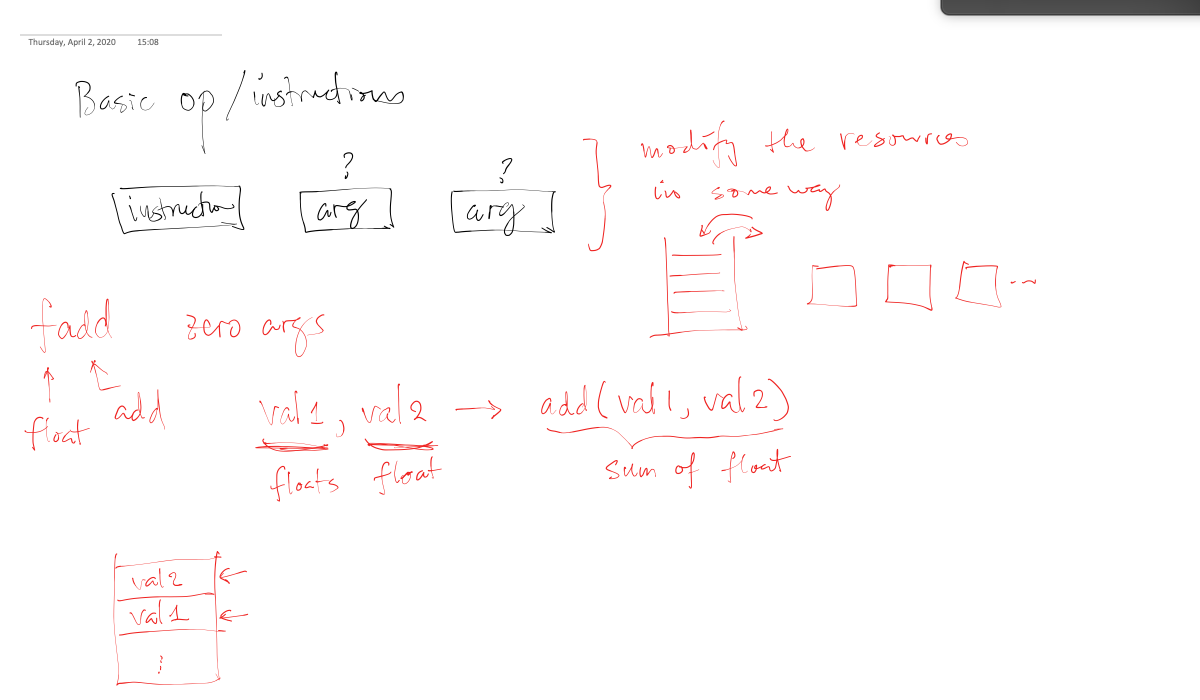 Thursday, April 2, 2020 15:08
Basic op/instructions
? ?
instruction arg arg
modify the resources
in some way
...
fadd zero args
float add
val1, val2 → add(val1, val2)
floats float sum of float
val2
val1
⋮